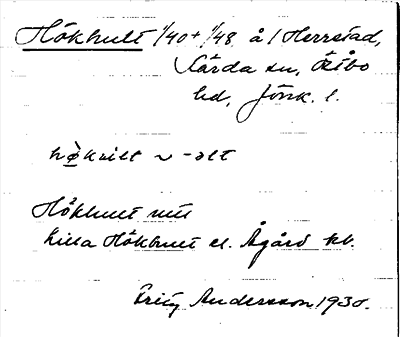 Hökhult 1/40 + 1/48 å 1 Herrstad,
Kärda sn, Östbo
hd, Jönk. l.
hø̀kɷlt ~ -ɷlt
Hökhult
lilla Hökhult el. Ågård kb.
Fritz Andersson 1930.